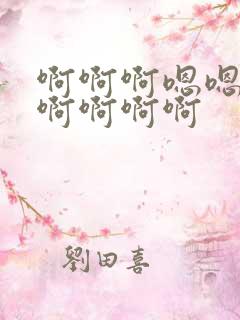 啊啊啊嗯嗯
啊啊啊啊
劉田喜